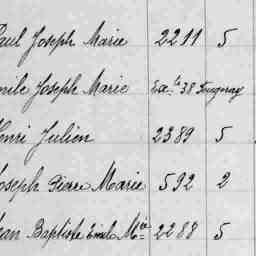 Paul Joseph Marie 2211 5
Emile Joseph Marie Ex. te 38
Henri Julien 2389 5
Joseph Pierre Marie 592 2
Jean Baptiste Emile Mie 2288 5